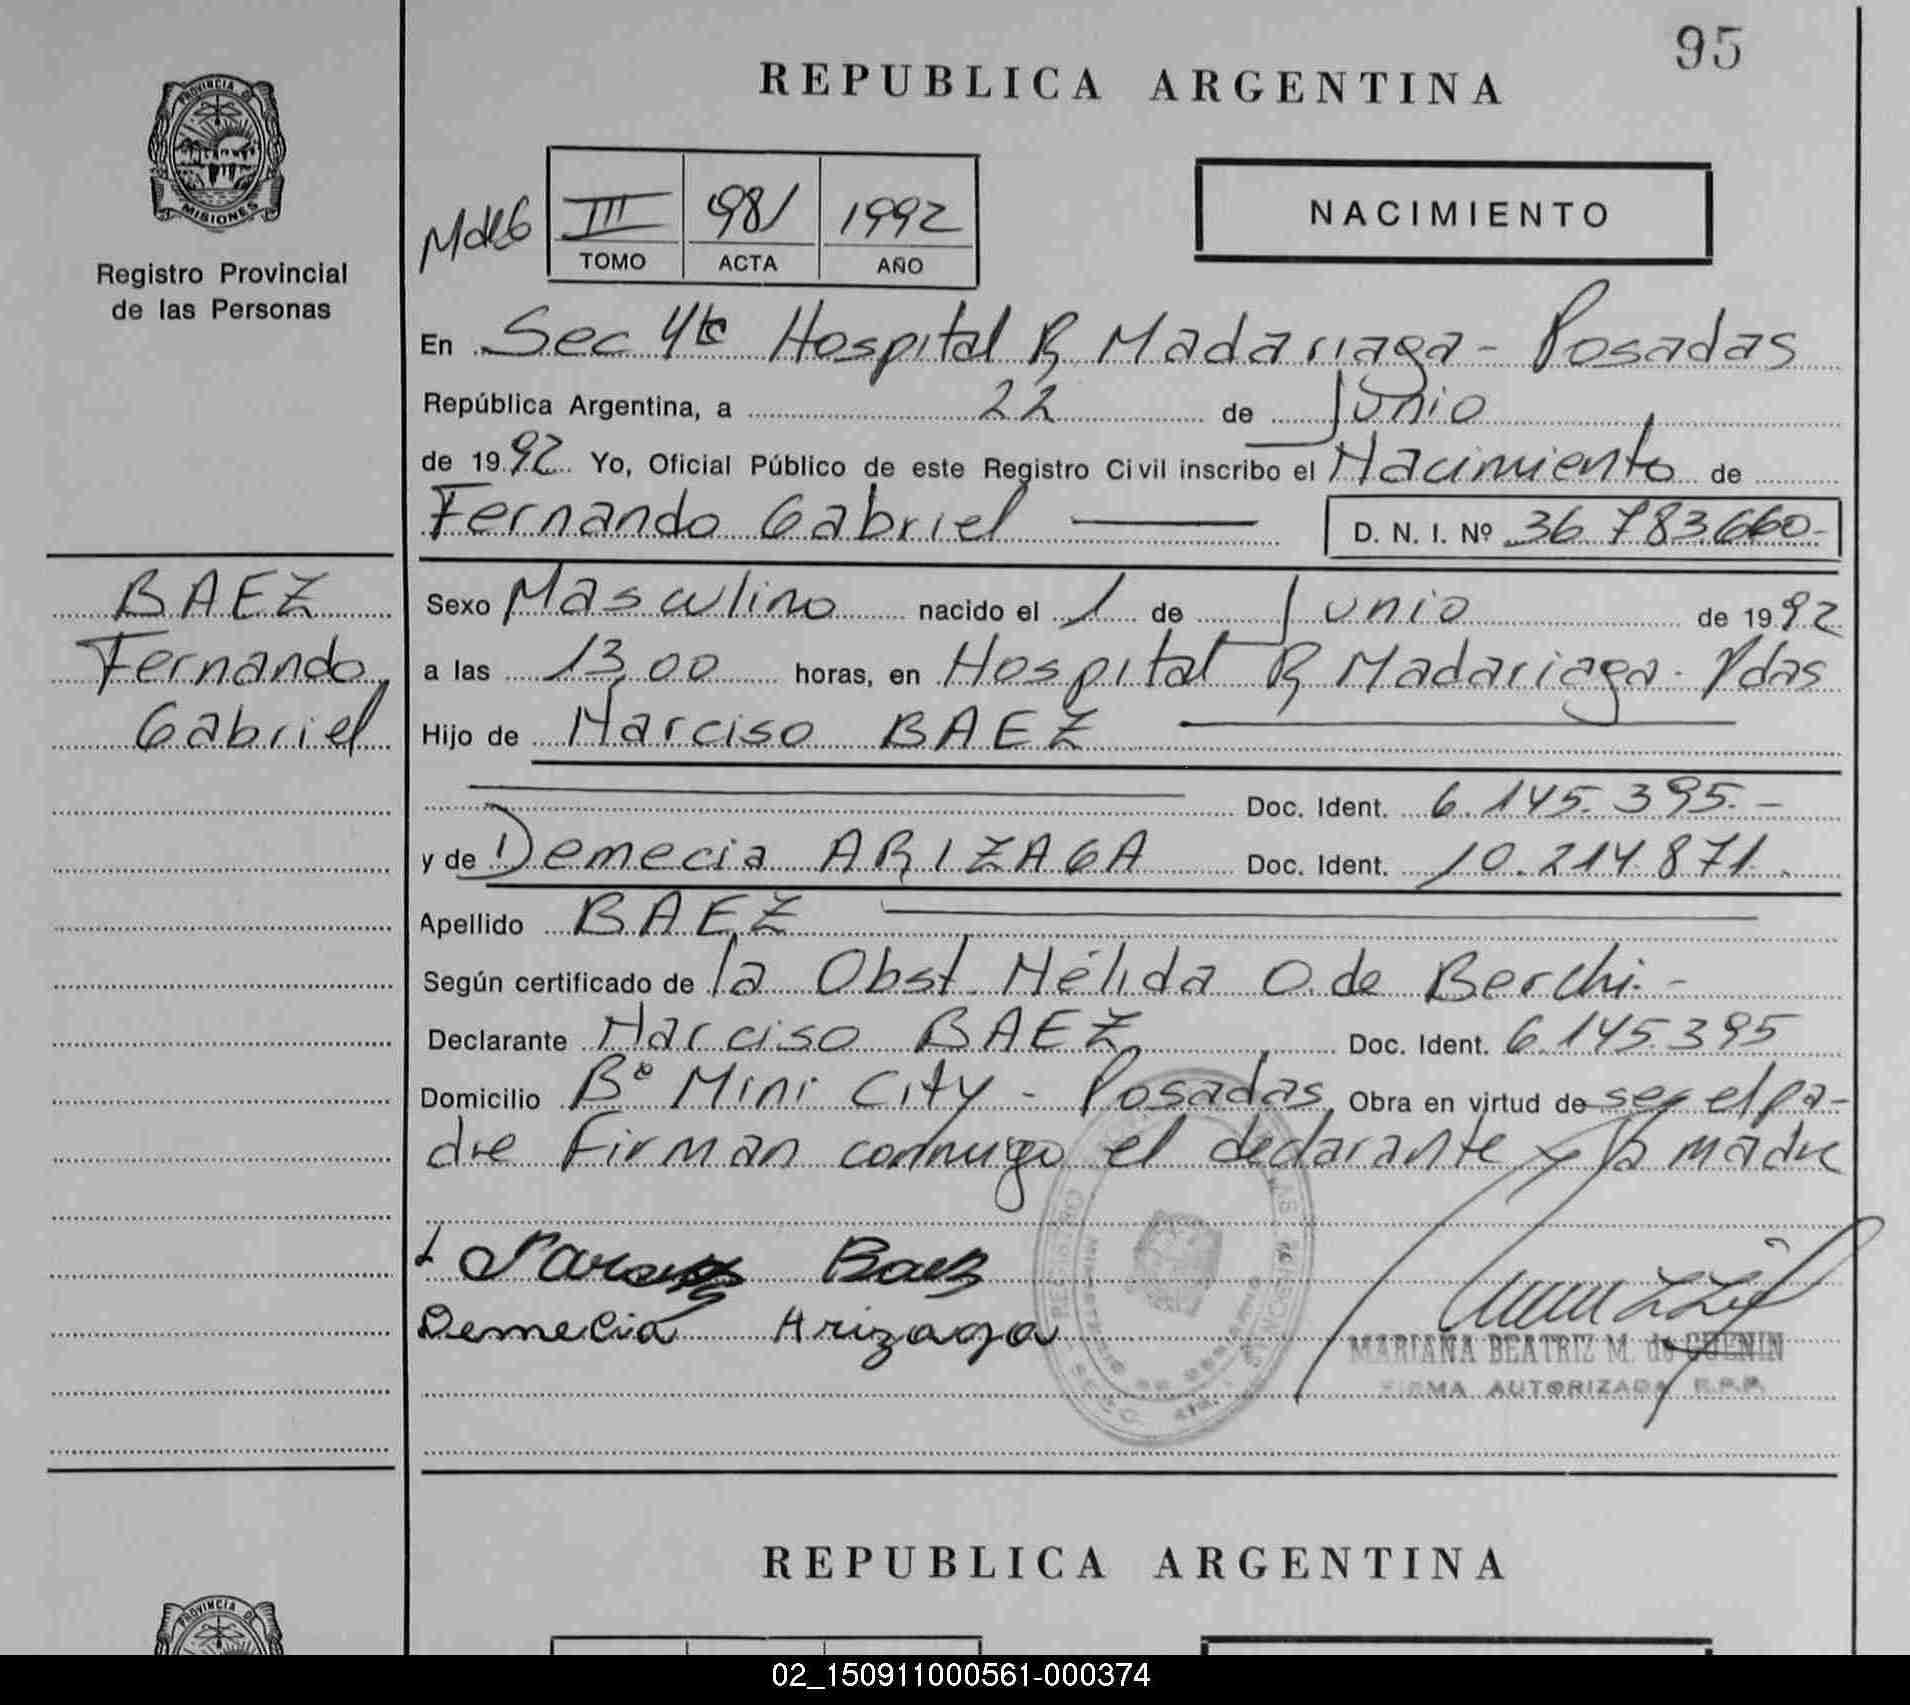 95
REPUBLICA ARGENTINA
PROVINCIA DE
MISIONES
Registro Provincial
de las Personas
III 981 1992
TOMO ACTA AÑO
NACIMIENTO
En Sec 4ta Hospital R Madariaga - Posadas
República Argentina, a 22 de Junio
de 1992 Yo, Oficial Público de este Registro Civil inscribo el Nacimiento de
Fernando Gabriel D. N. I. Nº 36.783.660-
BAEZ
Fernando
Gabriel
Sexo Masculino nacido el 1 de Junio de 1992
a las 13,00 horas, en Hospital R Madariaga - Pdas
Hijo de Narciso BAEZ
Doc. Ident. 6.145.395.-
y de Demecia ARIZAGA Doc. Ident. 10.214.871.
Apellido BAEZ
Según certificado de la Obst. Nélida O. de Berchi.-
Declarante Narciso BAEZ Doc. Ident. 6.145.395
Domicilio Bº Mini City - Posadas Obra en virtud de ser el pa-
dre Firman conmigo el declarante y la madre
Baez
Demecia Arizaga
MARIANA BEATRIZ M. de GUENIN
FIRMA AUTORIZADA R.P.P.
REPUBLICA ARGENTINA
PROVINCIA DE
02_150911000561-000374